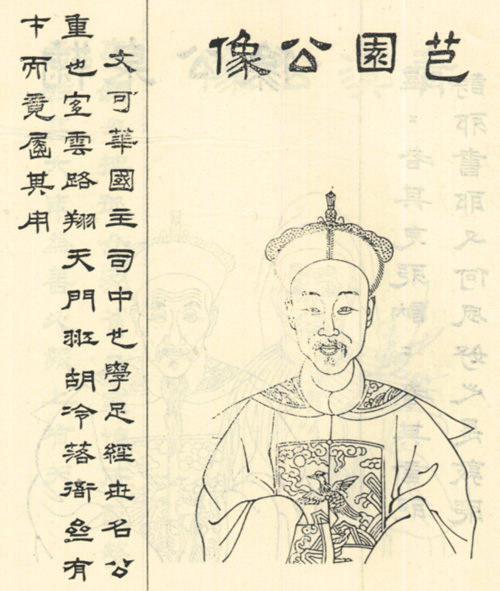 芑園公像
文可華國主司中也學足經世名公
重也宜雲路翔天門班胡冷落衙有
才而竟屈其用